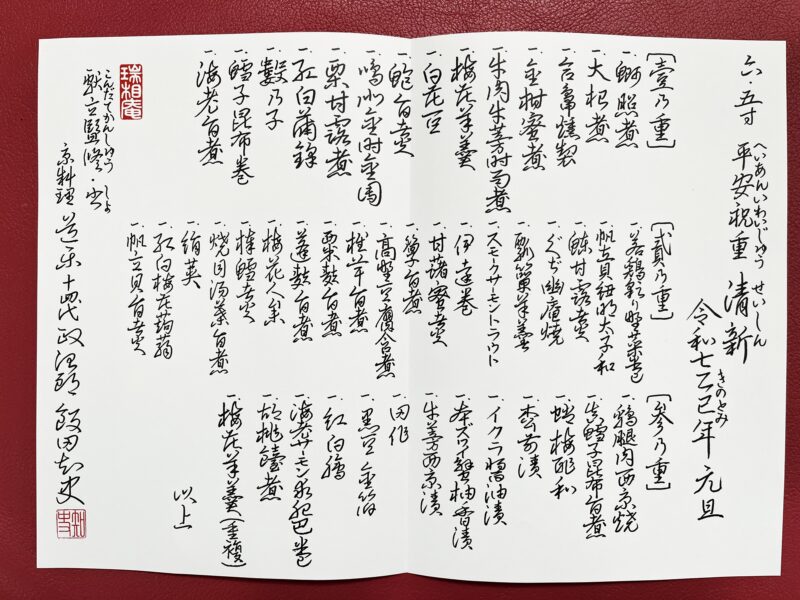 六・五寸 平安祝重 清新
へいあんいわいじゅう せいしん
令和七乙巳年 元旦
きのとみ
〔壹乃重〕
一、鮑照煮
一、大根煮
一、合鴨燻製
一、金柑蜜煮
一、牛肉牛蒡時雨煮
一、梅花羊羹
一、白花豆
一、鮑旨煮
一、鳴門金時金団
一、栗甘露煮
一、紅白蒲鉾
一、数乃子
一、鱈子昆布巻
一、海老旨煮
〔貳乃重〕
一、若鶏彩り野菜巻
一、帆立貝紐明太子和
一、鰊甘露煮
一、ぐぢ幽庵焼
一、瓢箪羊羹
一、スモークサーモントラウト
一、伊達巻
一、甘藷蜜煮
一、蕈旨煮
一、高野豆腐含煮
一、椎茸旨煮
一、粟麩旨煮
一、蓬麩旨煮
一、梅花人参
一、棒鱈煮
一、焼目湯葉旨煮
一、絹英
一、紅白梅花蒟蒻
一、帆立貝旨煮
〔参乃重〕
一、鶏腿肉西京焼
一、真鱈子昆布旨煮
一、蛸梅肉和
一、松前漬
一、イクラ醤油漬
一、本ズワイ蟹柚香漬
一、牛蒡西京漬
一、田作
一、黒豆 金箔
一、紅白膾
一、海老サーモン砧巻
一、胡桃飴煮
一、梅花羊羹(重複)
以上
瑞相庵
こんだてかんしゅう しょ
献立監修・書
京料理 道楽十四代 政治郎 飯田知史
知史